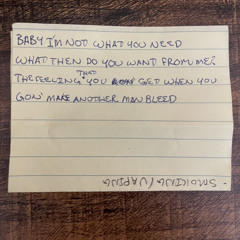 BABY I'M NOT WHAT YOU NEED
WHAT THEN DO YOU WANT FROM ME?
THE FEELING THAT YOU GET WHEN YOU
GON' MAKE ANOTHER MAN BLEED
- SMOKING / VAPING